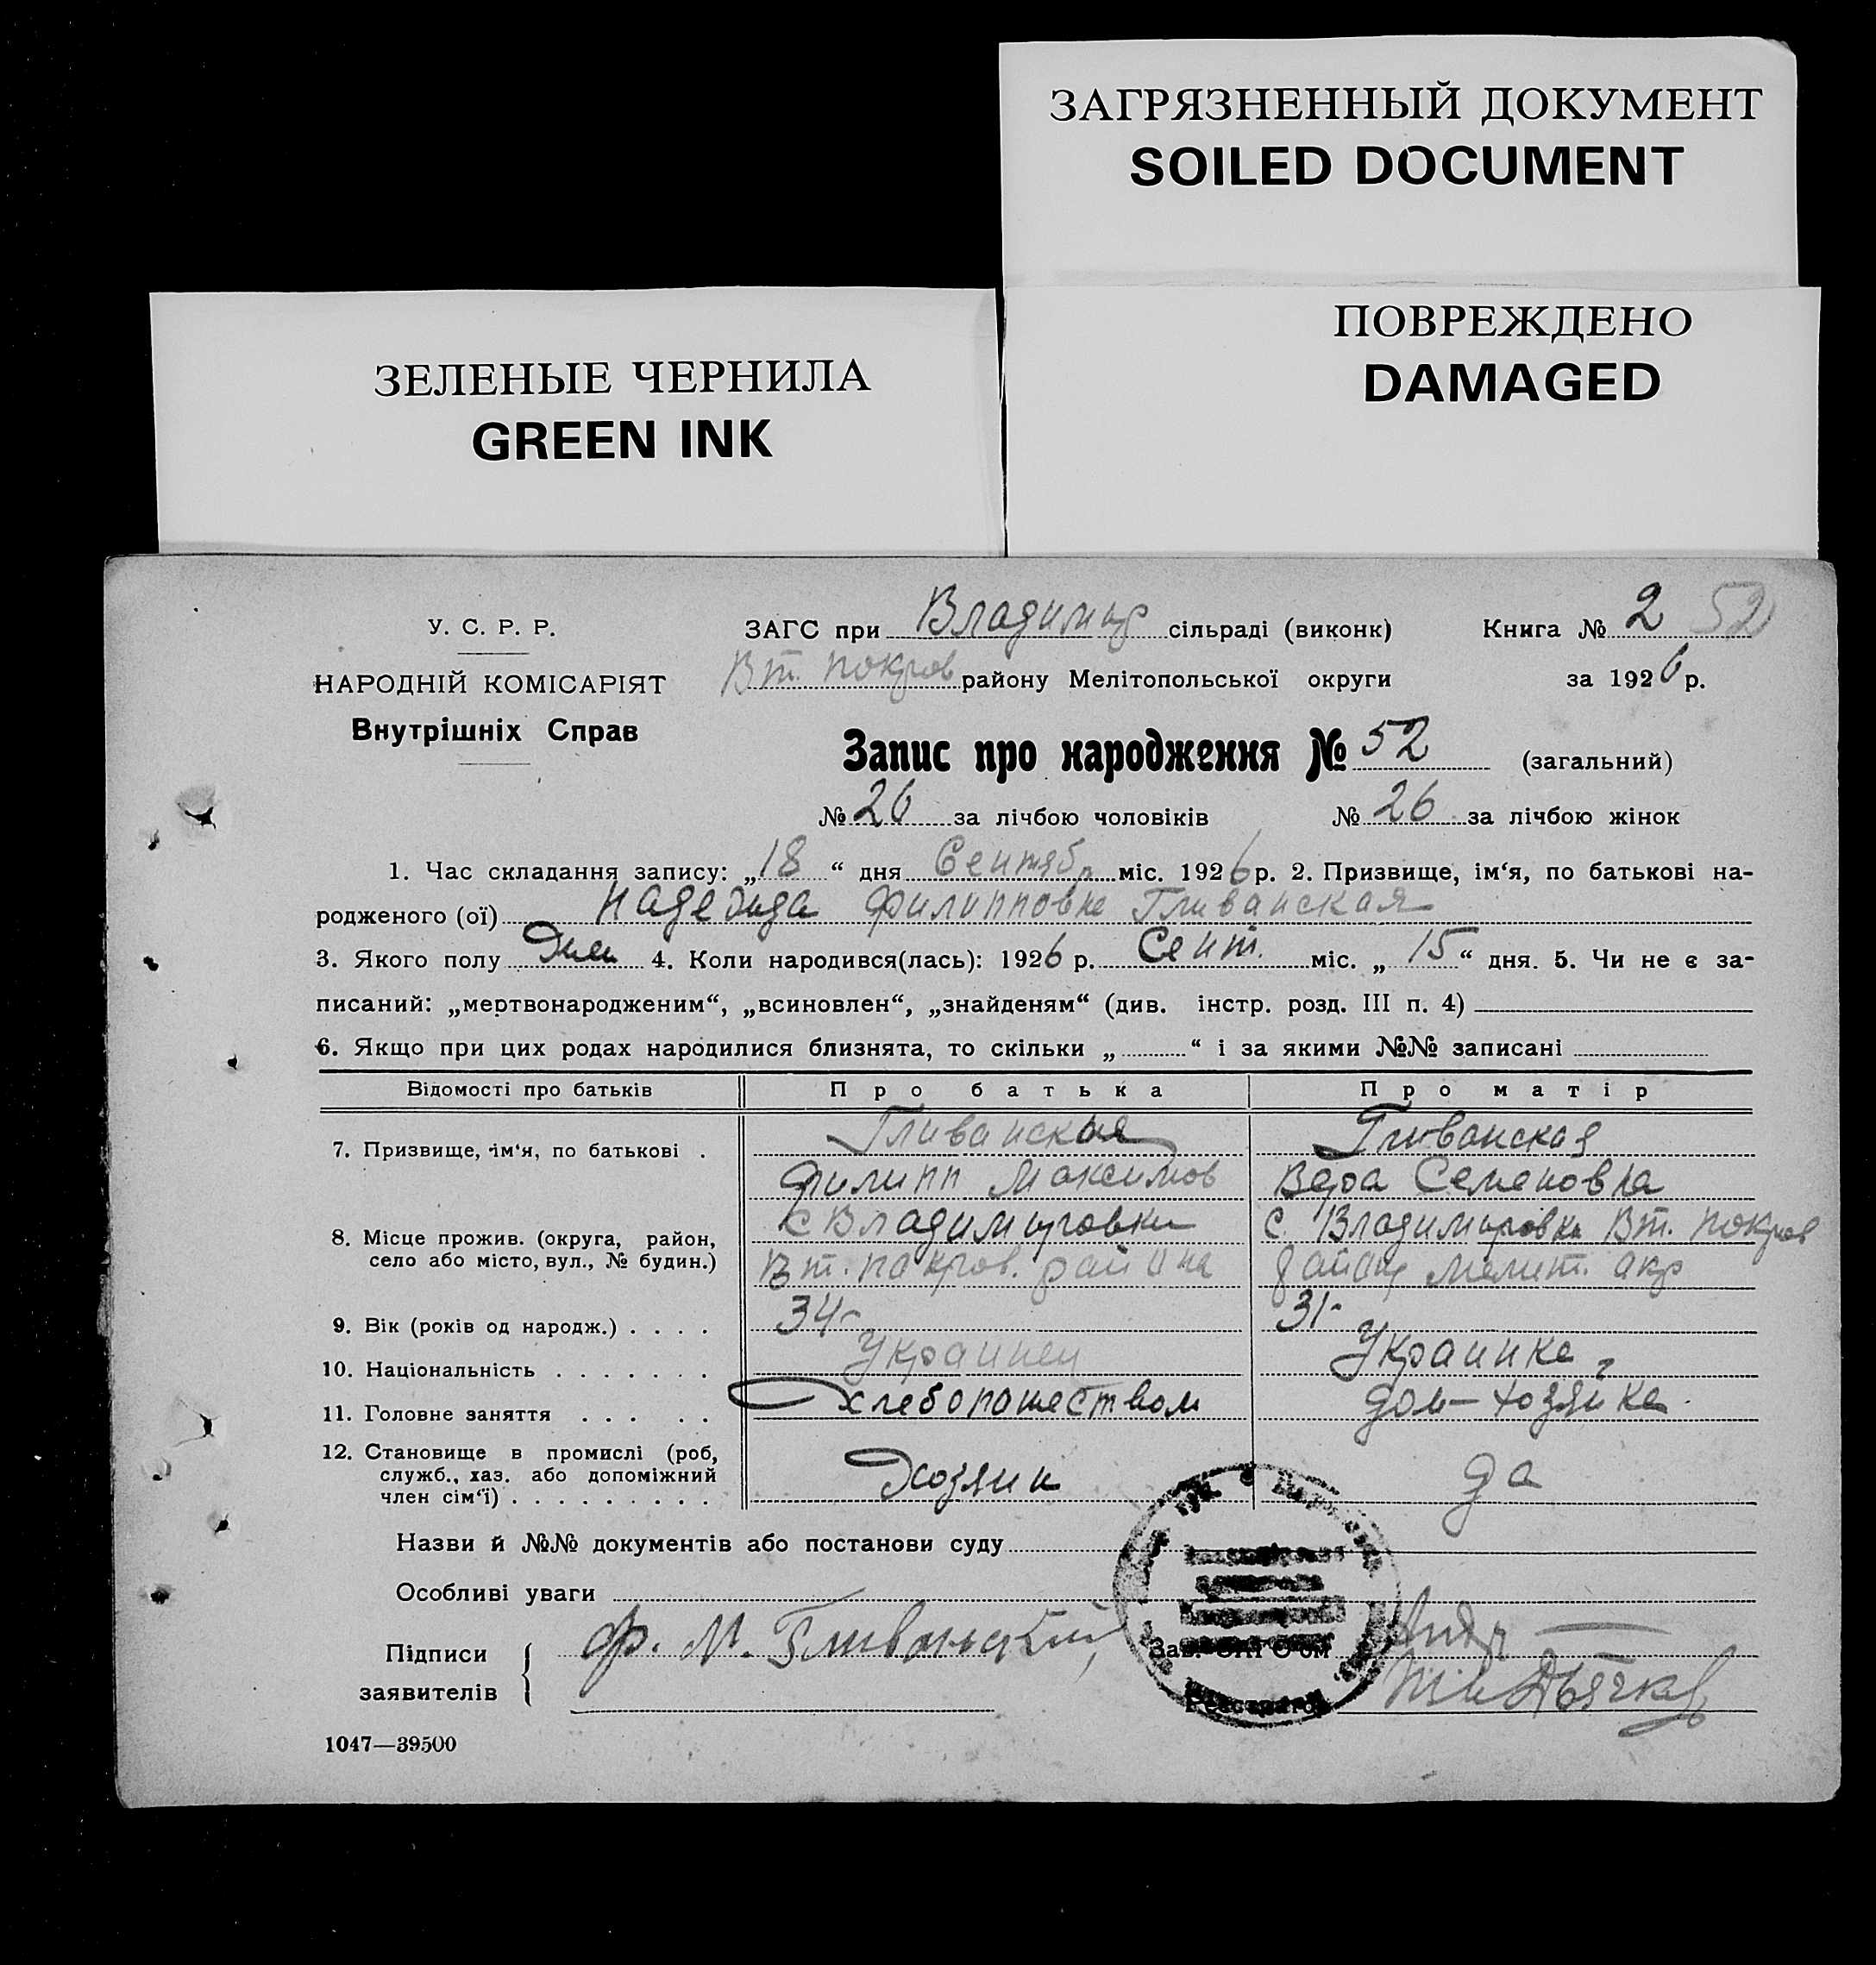 ЗАГРЯЗНЕННЫЙ ДОКУМЕНТ
SOILED DOCUMENT
ПОВРЕЖДЕНО
DAMAGED
ЗЕЛЕНЫЕ ЧЕРНИЛА
GREEN INK
У. С. Р. Р.
НАРОДНІЙ КОМІСАРІЯТ
Внутрішніх Справ
ЗАГС при Владимир сільраді (виконк)
Книга № 2 52
Вт. покров району Мелітопольської округи
за 1926 р.
Запис про народження № 52 (загальний)
№ 26 за лічбою чоловіків № 26 за лічбою жінок
1. Час складання запису: „18“ дня Сентябр міс. 1926 р. 2. Призвище, ім‘я, по батькові на-
родженого (ої) Надежда Филипповна Гливанская
3. Якого полу Жен 4. Коли народився(лась): 1926 р. Сент. міс. „15“ дня. 5. Чи не є за-
писаний: „мертвонародженим“, „всиновлен“, „знайденям“ (див. інстр. розд. III п. 4)
6. Якщо при цих родах народилися близнята, то скільки „ “ і за якими №№ записані
Відомості про батьків Про батька Про матір
7. Призвище, ім‘я, по батькові . Гливанская Гливанская
Филипп Максимов Вера Семеновна
8. Місце прожив. (округа, район, село або місто, вул., № будин.) с Владимировки с. Владимировки Вт. покров
Вт. покров. района району Мелит. окр
9. Вік (років од народж.) . . . . 34- 31-
10. Національність . . . . . . . Украинец Украинка
11. Головне заняття . . . . . хлебопашеством дом-хозяйка
12. Становище в промислі (роб, служб., хаз. або допоміжний член сім‘ї) . . . . . . . . . Хозяин да
Назви й №№ документів або постанови суду
Особливі уваги
Підписи
заявителів
Ф. М. Гливанский
Зав.
Дьячков
1047—39500